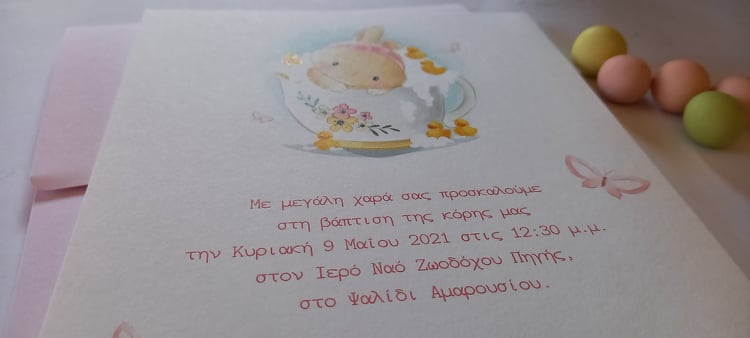 Με μεγάλη χαρά σας προσκαλούμε
στη βάπτιση της κόρης μας
την Κυριακή 9 Μαΐου 2021 στις 12:30 μ.μ.
στον Ιερό Ναό Ζωοδόχου Πηγής,
στο Ψαλίδι Αμαρουσίου.